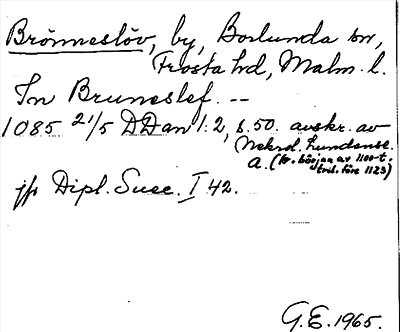 Brönneslöv, by, Borlunda sn,
Frosta hd, Malm. l.
In Bruneslef. --
1085 21/5 DDan 1:2, s. 50. avskr. av
Nekrol. Lundense.
A. (fr. början av 1100-t.
trol. före 1123)
jfr Dipl. Suec. I 42.
G.E. 1965.